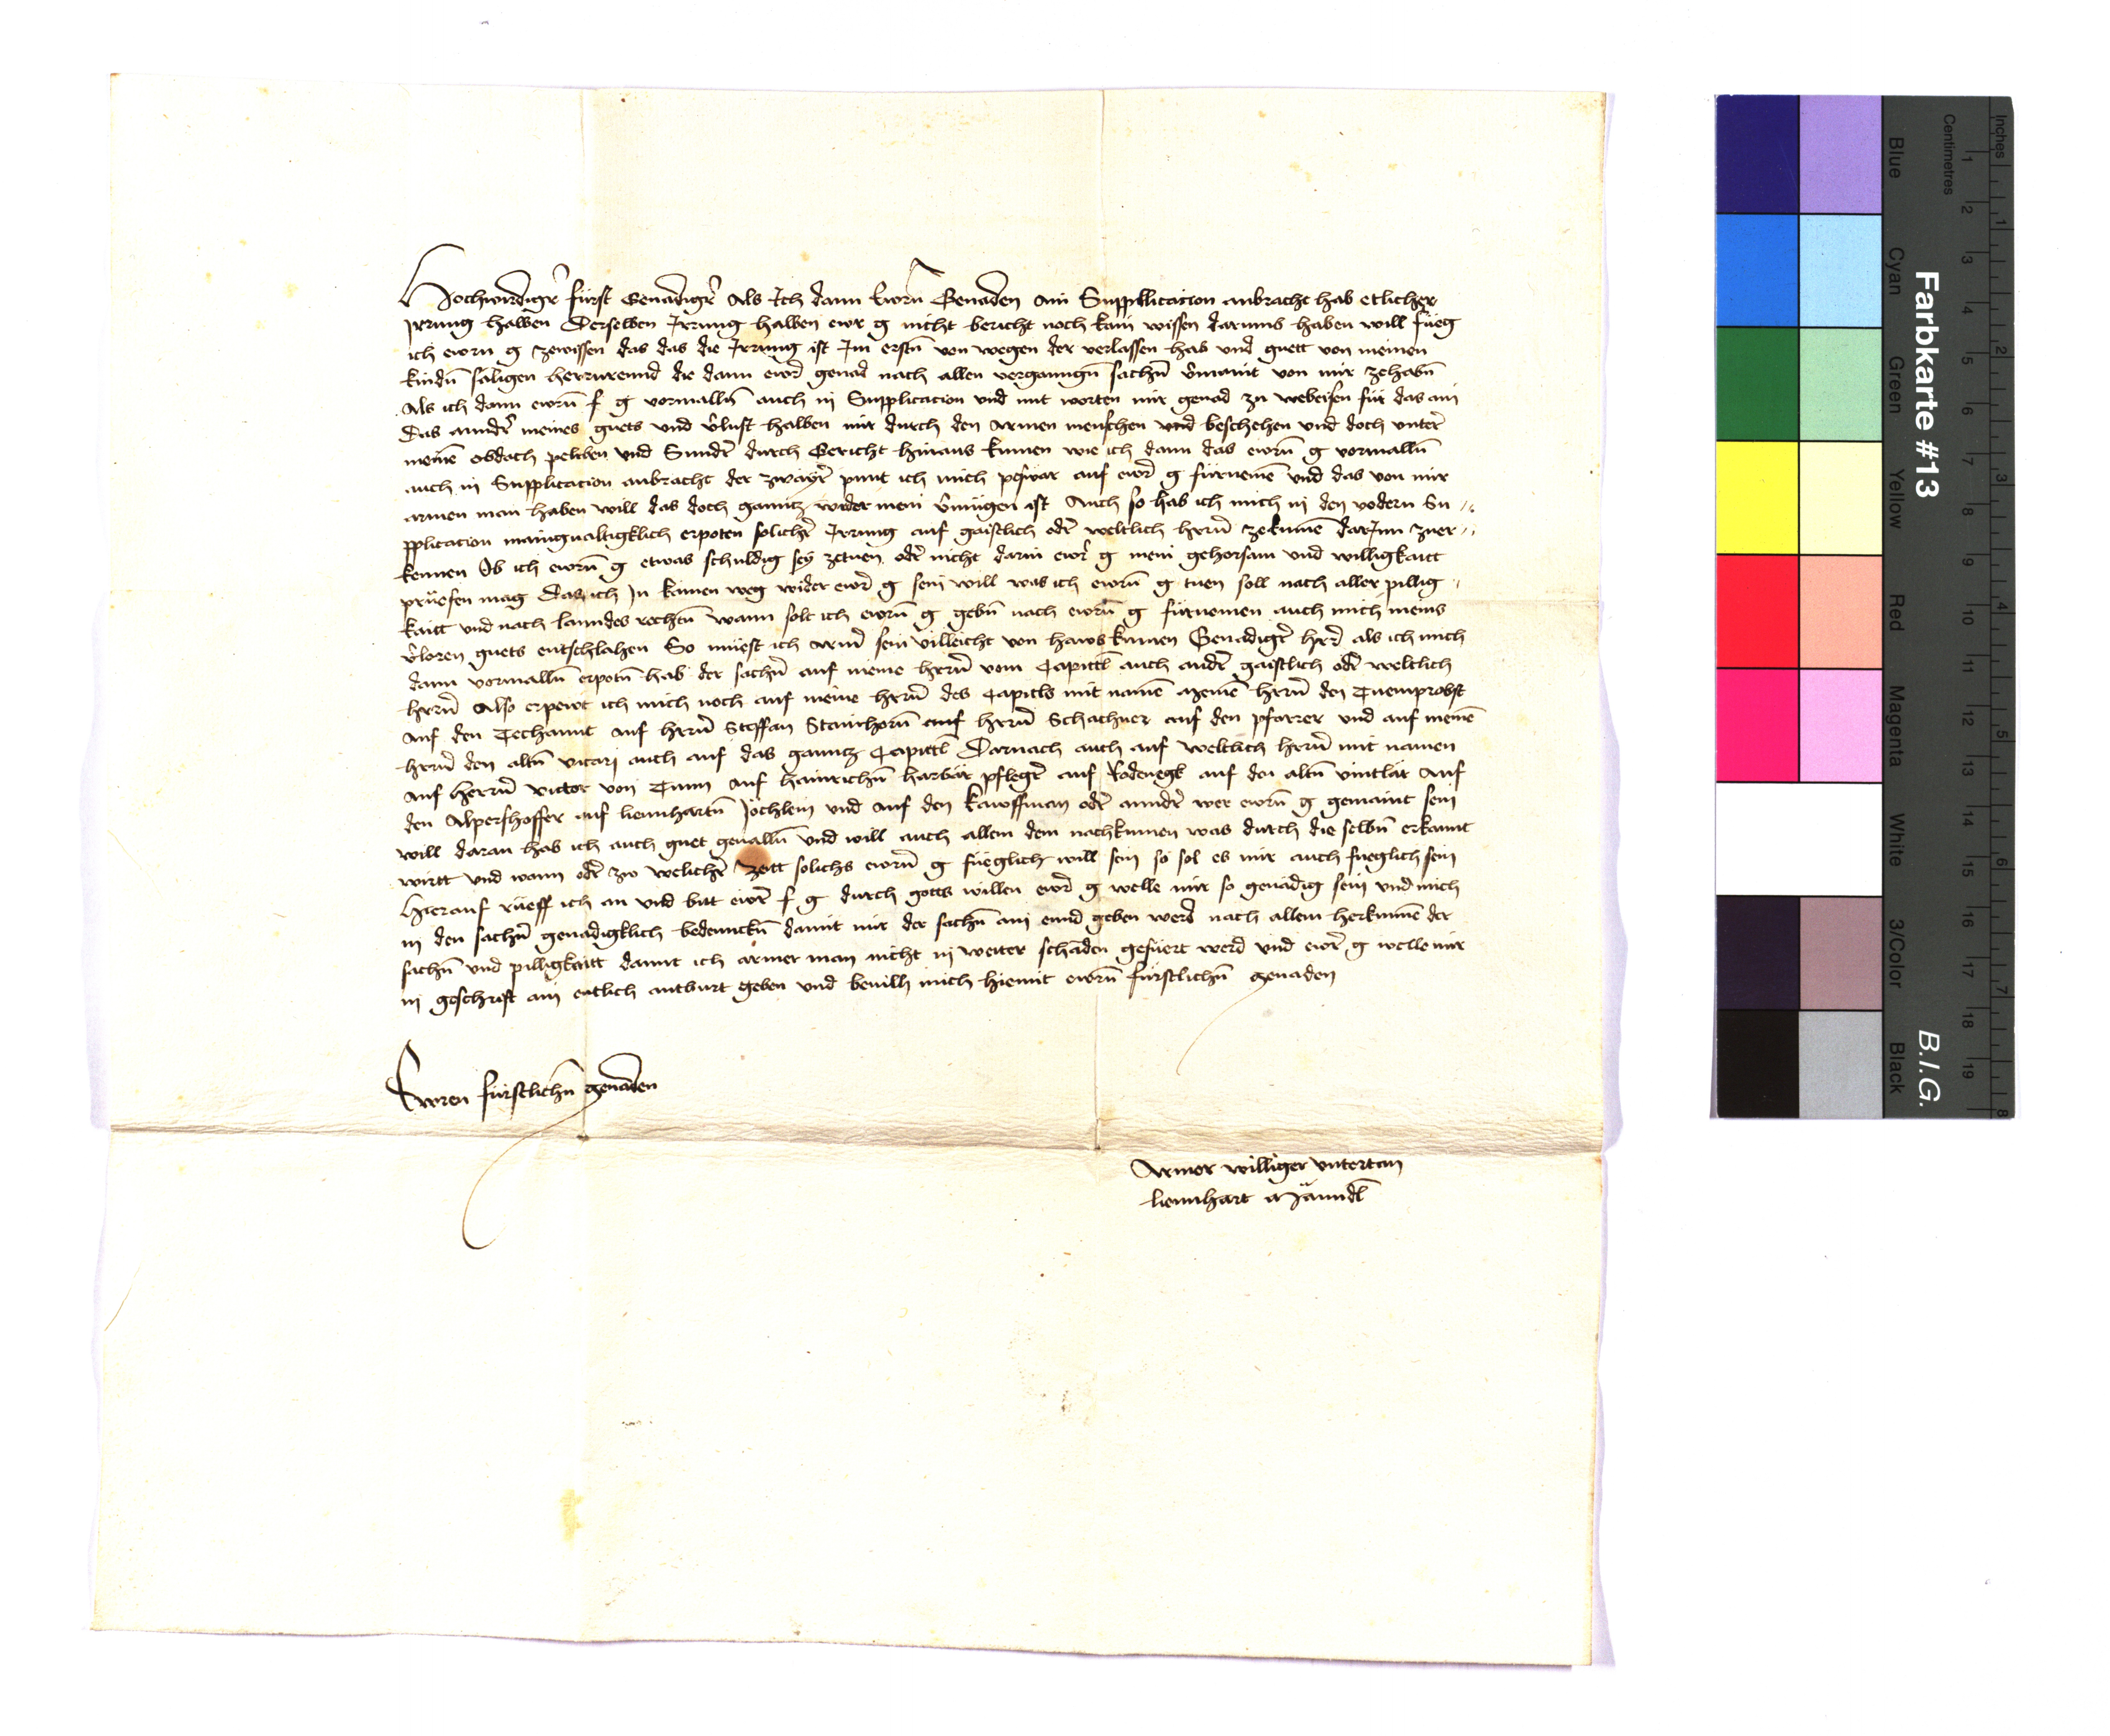 Hochwirdigr̄ fürst Genadigr̄ Als Ich dann Ewrn̄ Genaden ain Suppblicacion anbracht hab etlicher
Irrung halben Derselben Irrung halben ewr g nicht bericht noch kain wissen darumb haben will fueg
ich ewrn g zewissen das das die Irrung ist Im erstn̄ von wegen der verlassen hab vnd guett von meinen
kindn̄ säligen herrurennd die dann ewr genad nach allen vergangn̄ sachn̄ v̄maint von mir zehabn̄
Als ich dann ewrn̄ f g vormalln̄ auch in Supplicacion vnd mit worten mir genad zu webeisen für das ain
Das anndr̄ meines guets vnd v̄lust halben mir durch den armen menschen vnd beschehen vnd doch vnter
meinē obdach peleben vnd Sundr̄ durch Gericht hinaus kumen wie ich dann das ewrn̄ g vormalln̄
auch in Supplicacion anbracht der zwayr̄ punt ich mich auf ewr g fürnemē vnd das von mir
armen man haben will das doch ganntz wider mein v̄mügen ist Auch so hab ich mich in den vodern Su
pplication manigualtigklich erpoten solichr̄ Irrung auf gaistlich odr̄ weltlich hrrn̄ zekumē darInn zuer
kennen Ob ich ewrn̄ g etwas schuldig sey zetuen odr̄ nicht darin ewr g mein gehorsam vnd willigkaitt
prüefen mag Das ich In kainen weg wider ewr g sein will was ich ewrn̄ g tuen soll nach aller pillig
kaitt vnd nach lanndes rechtn̄ wann solt ich ewrn̄ g gebn̄ nach ewrn̄ g fürnemen auch mich meins
v̄loren guets entschlahen So müest ich armr̄ sein villeicht von haws kumen Genadigr̄ hrr als ich mich
dann vormalln̄ erpotn̄ hab der sachn̄ auf meine hrrn̄ vom Capittl auch andr̄ gaistlich odr̄ weltlich
hrrn̄ Also erpewt ich mich noch auf meine hrrn̄ des Capitls mit namē meinē hrrn̄ den Tuemprobst
auf den Techannt auf hrrn̄ Steffan Stainhorn̄ auf hrrn̄ Schachner auf den pfarrer vnd auf meinē
hrrn̄ den altn̄ vicari auch auf das ganntz Capittl Darnach auch auf weltlich hrrn̄ mit namen
auf herrn̄ victor von Tunn auf hainrichn̄ harbär pflegr̄ auf Rodenegk auf den altn̄ vintlär Auf
den Alpershoffer auf liennhartn̄ Jöchlein vnd auf den kawffman odr̄ anndr̄ wer ewrn̄ g gemaint sein
will daran hab ich auch guet geualln̄ vnd will auch allem dem nachkumen was durch die selbn̄ erkannt
wirtt vnd wann odr̄ zw welichr̄ Zeitt solichs ewrn̄ g füeglich will sein so sol es mir auch fueglich sein
Hierauf rüeff ich an vnd bitt ewr f g durch gotts willen ewr g welle mir so genädig sein vnd mich
in den sachn̄ genadigklich bedennckn̄ damit mir der sachn̄ ain ennd geben werd nach allem herkumē der
sachn̄ vnd pilligkaitt damit ich armer man nicht in weiter schaden gefüert werd vnd ewr g welle mir
in geschrift ain entlich antburt geben vnd beuilh mich hiemit ewrn̄ fürstlichn̄ genaden
Ewren fürstlichn̄ genaden
Armer williger vntertan
liennhart Männdl
Farbkarte #13
B.I.G.
Blue
Cyan
Green
Yellow
Red
Magenta
White
3/Color
Black
Centimetres
Inches
1 2 3 4 5 6 7 8 9 10 11 12 13 14 15 16 17 18 19
1 2 3 4 5 6 7 8